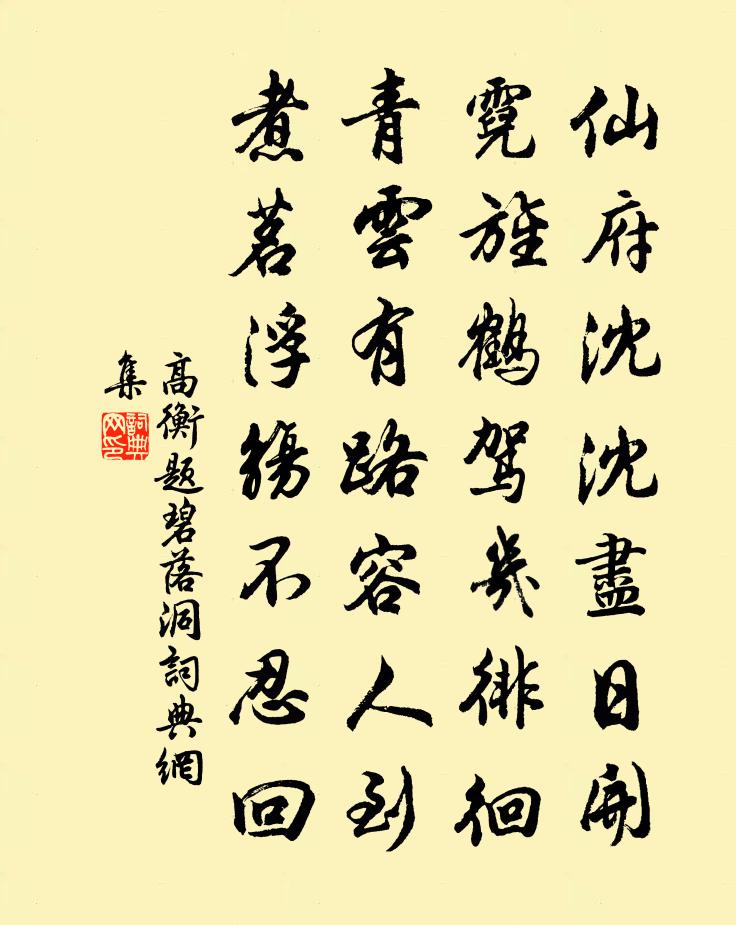 仙府沈沈盡日開
霓旌鶴駕幾徘徊
青雲有路容人到
煮茗浮觴不忍回
高衡題碧落洞詞典網
集
詞典
网印